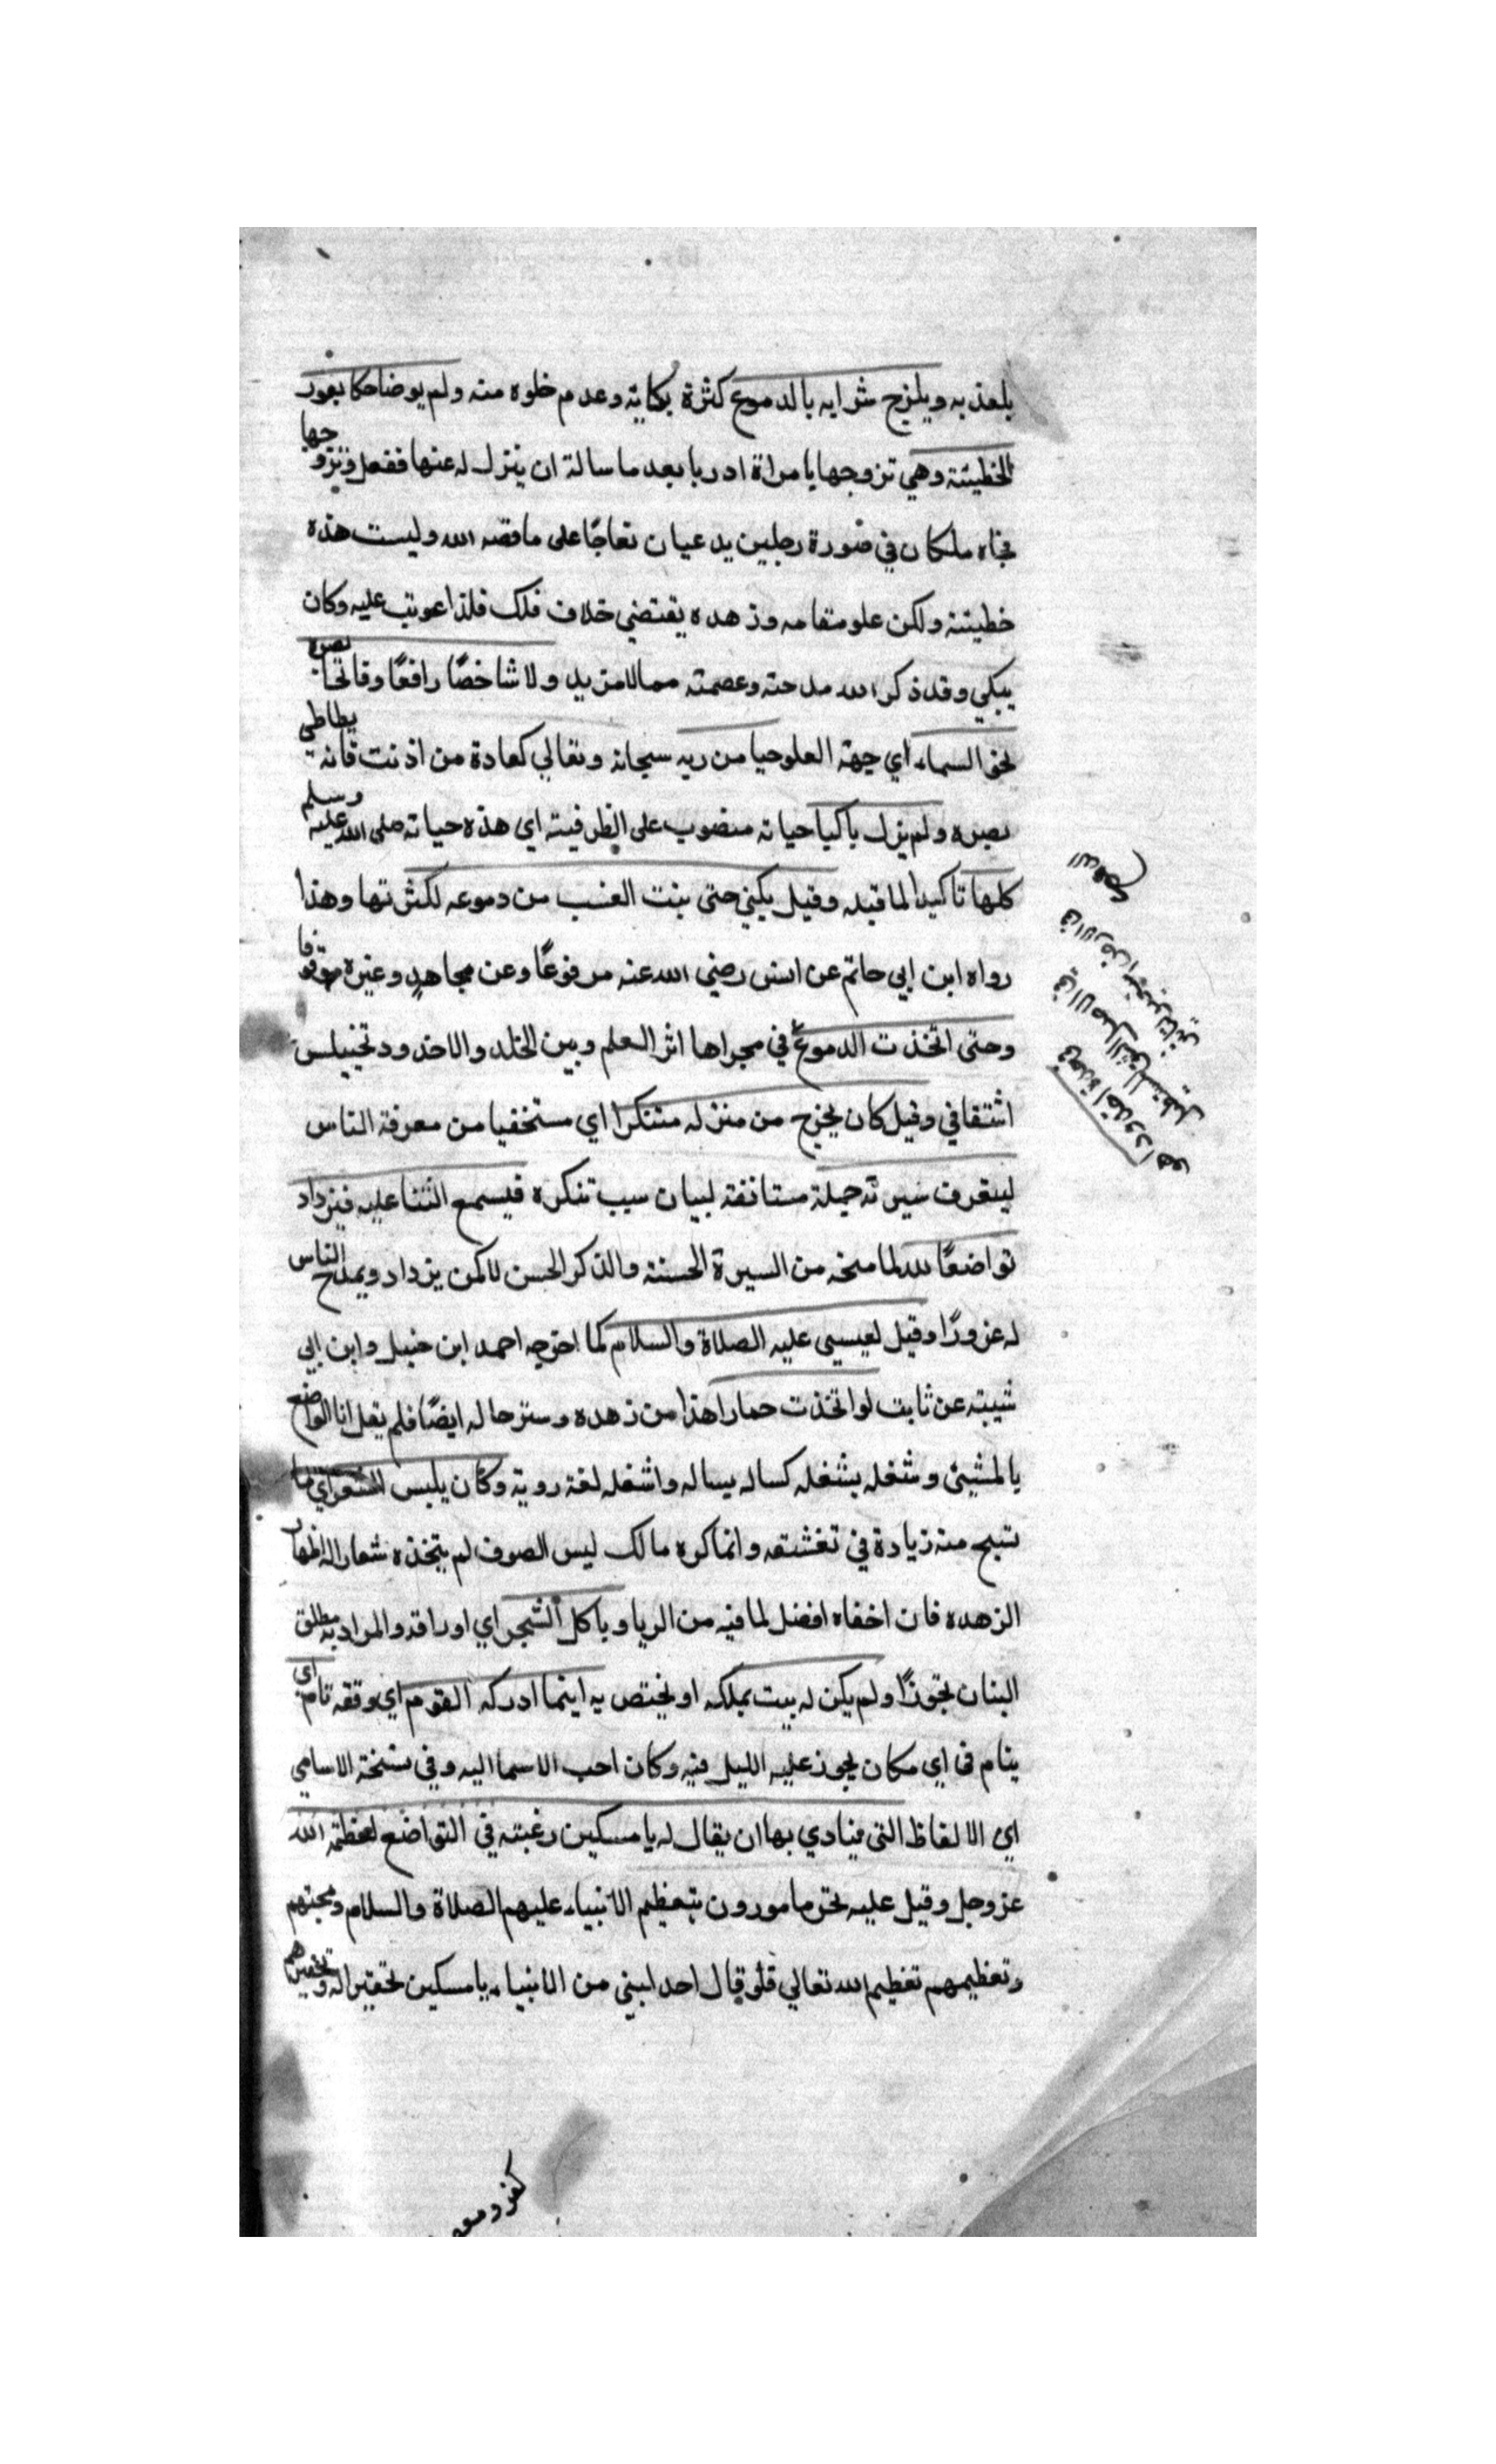 بلعذبه ويمزج شرابه بالدموع كثرة بكايه وعدم خلوه منه ولم ير ضاحكا بعد
الخطيئة وهي تزوجها بامراة اوريا بعد ما ساله ان ينزل له عنها ففعل وتزوجها
فجاه ملكان في صورة رجلين يدعيان نعاجا على ما قصه الله وليست هذه
خطيئة ولكن علو مقامه وزهده يقتضي خلاف ذلك فلذا عوتب عليه وكان
يبكي وقد ذكر الله مدحته وعصمته ممالا مزيد ولا شاخصًا رافعًا وفاتحا بصره
نحو السماء اي جهة العلو حيا من ربه سبحانه وتعالي كعادة من اذنب فانه يطاطي
بصره ولم يزل باكيا حياته منصوب على الظرفية اي هذه حياته صلى الله عليه وسلم
كلها تاكيد لما قبله وقيل بكي حتى نبت العشب من دموعه لكثرتها وهذا
رواه ابن ابي حاتم عن انس رضي الله عنه مرفوعًا وعن مجاهد وغيره موقوفا
وحتى اتخذت الدموع في مجراها اثر العلم وبين الخد والاخدود تجنيس
اشتقاقي وقيل كان يخرج من منزله متنكرا اي مستخفيا من معرفة الناس
ليتعرف سيرته جملة مستانفة لبيان سبب تنكره فيسمع الثنا عليه فيزداد
تواضعًا لله لما منحه من السيرة الحسنة والذكر الحسن لا كمن يزداد ويمدح الناس
له غرورًا وقيل لعيسي عليه الصلاة والسلام كما اخرجه احمد ابن حنبل وابن ابي
شيبة عن ثابت لو اتخذت حمارا هذا من زهده وستر حاله ايضًا فلم يقل انا اتواضع
بالمشيئ وشغله يشغله كساله يساله واشغله لغة رديه وكان يلبس الشعر اي ما
نسج منه زيادة في تقشفه وانما كره مالك لبس الصوف لم يتخذه شعارا لاظهار
الزهده فان اخفاه افضل لما فيه من الريا وياكل الشجر اي اوراقه والمراد به مطلق
النبات تجوزًا ولم يكن له بيت يملكه او يختص به اينما ادركه النوم اي وقته نام اي
ينام في اي مكان يجوز عليه الليل فيه وكان احب الاسما اليه وفي نسخة الاسامي
اي الالفاظ التي ينادي بها ان يقال له يا مسكين رغبته في التواضع لعظمة الله
عز وجل وقيل عليه نحن مامورون بتعظيم الانبياء عليهم الصلاة والسلام ومحبتهم
وتعظيمهم تعظيم لله تعالي فلو قال احد لنبي من الانبياء يا مسكين تحقيرا له وتحقيرهم
كفر